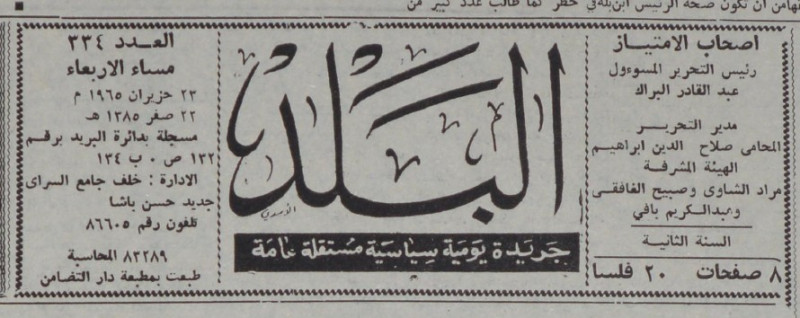 تهامن ان تكون صحة الرئيس ابن بله في خطر كما طالب عدد كبير من
اصحاب الامتياز
رئيس التحرير المسوءول
عبد القادر البراك
مدير التحرير
المحامى صلاح الدين ابراهيم
الهيئة المشرفة
مراد الشاوى وصبيح الغافقى
وعبدالكريم بافي
السنة الثانية
٨ صفحات ٢٠ فلسا
البلد
جريدة يومية سياسية مستقلة عامة
العدد ٣٣٤
مساء الاربعاء
٢٣ حزيران ١٩٦٥ م
٢٢ صفر ١٣٨٥ هـ
مسجلة بدائرة البريد برقم
١٣٢ ص ٠ ب ١٣٤
الادارة : خلف جامع السراى
جديد حسن باشا
تلفون رقم ٨٦٦٠٥
٨٣٢٨٩ المحاسبة
طبعت بمطبعة دار التضامن